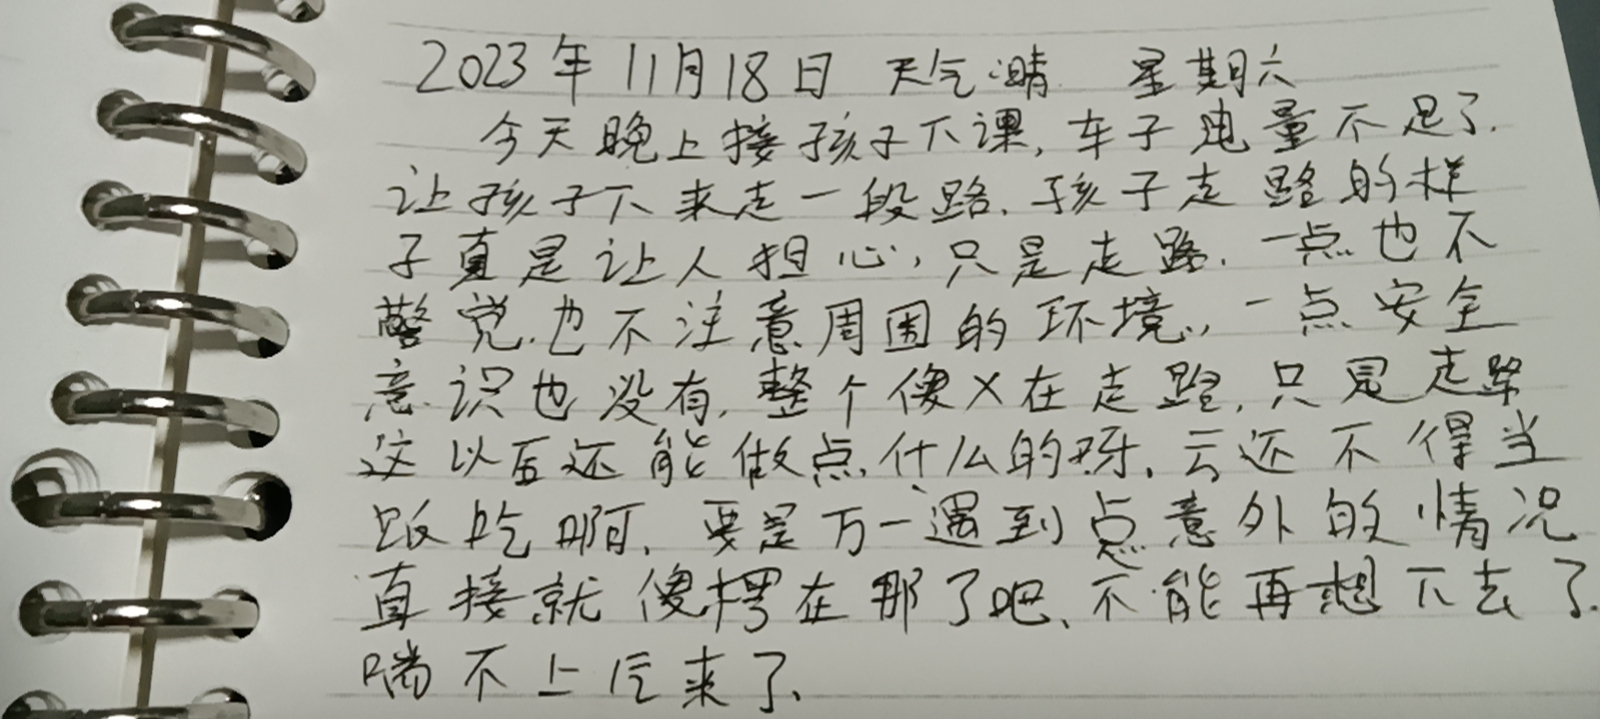 2023年11月18日 天气:晴 星期六
今天晚上接孩子下课,车子电量不足了.
让孩子下来走一段路.孩子走路的样
子真是让人担心,只是走路.一点也不
警觉.也不注意周围的环境.,一点安全
意识也没有.整个傻X在走路.只见走路
这以后还能做点什么的呀.云还不得当
饭吃啊.要是万一遇到点意外的情况
直接就傻愣在那了吧、不能再想下去了.
喘不上气来了.